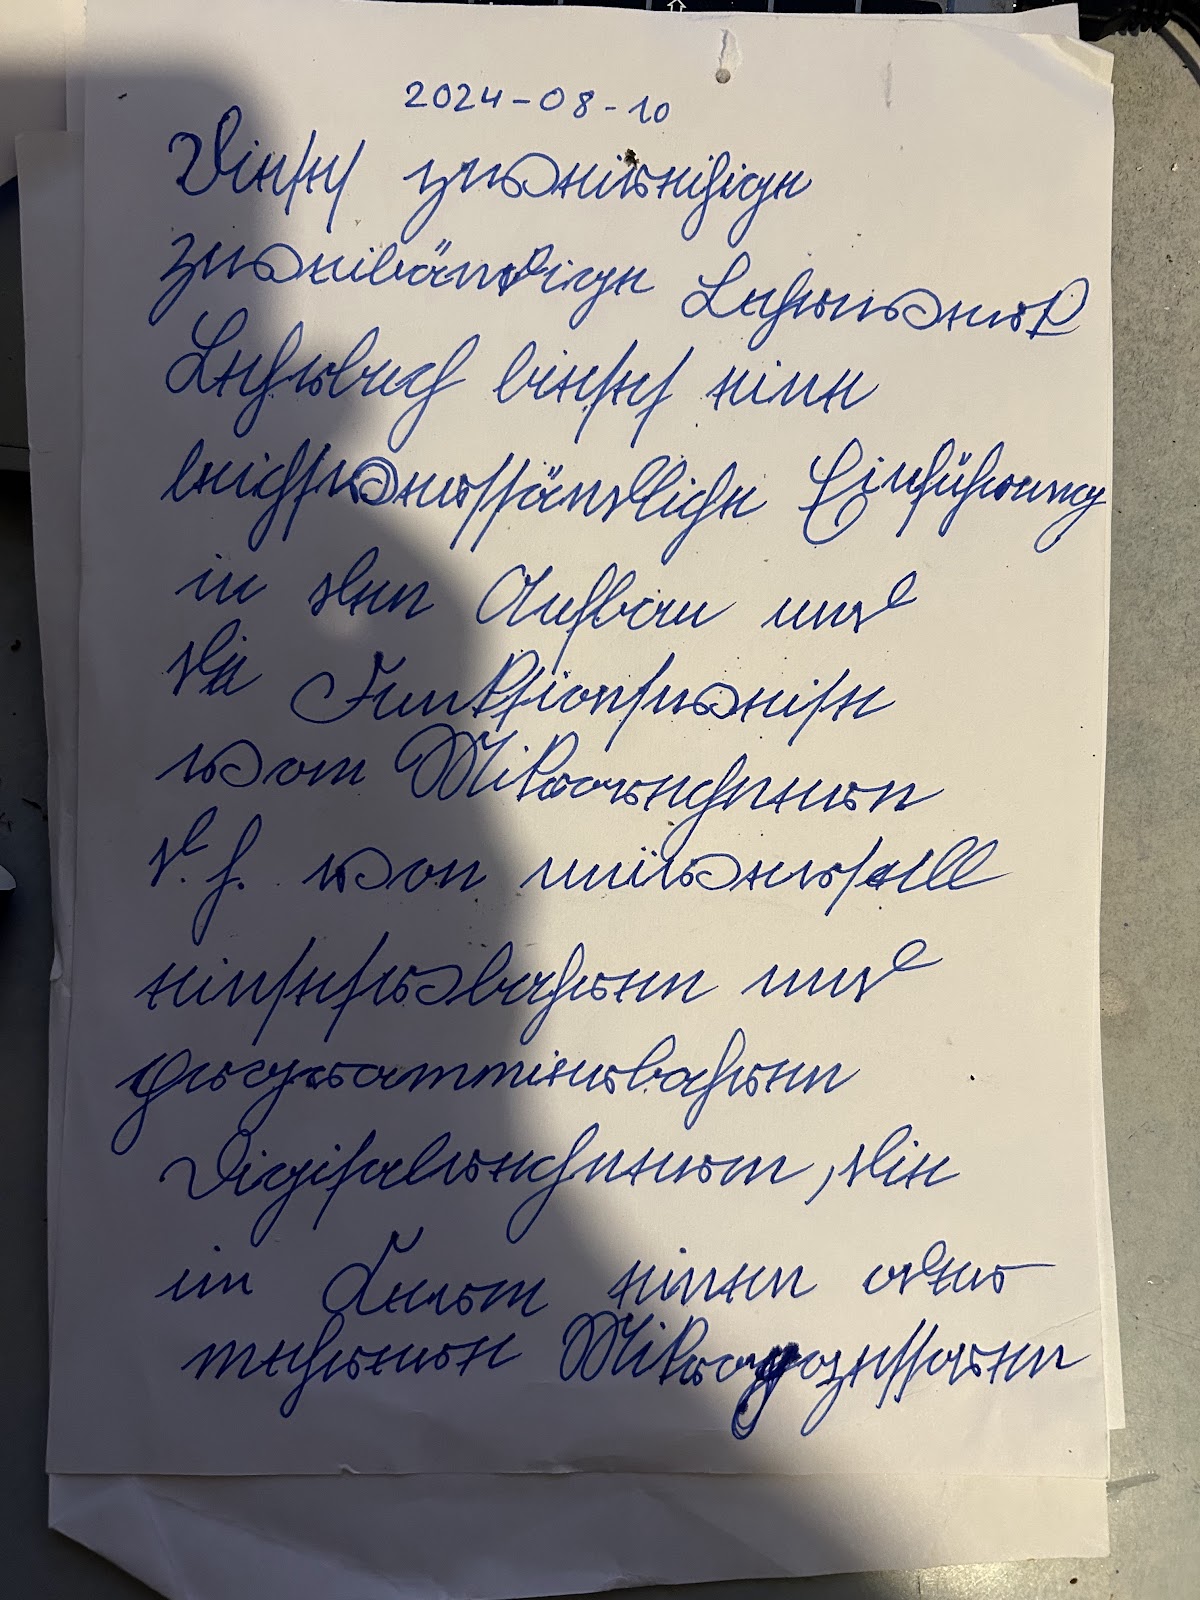 2024-08-10
Dieses zweiseitigen
zweibändigen Lehrwerk
Lehrbuch bietet eine
leichtverständliche Einführung
in den Aufbau und
die Funktionsweise
vom Mikrorechnern
d. h. von universell
einsetzbaren und
programmierbaren
Digitalrechnern, die
im Kern einen oder
mehrere Mikroprozessoren